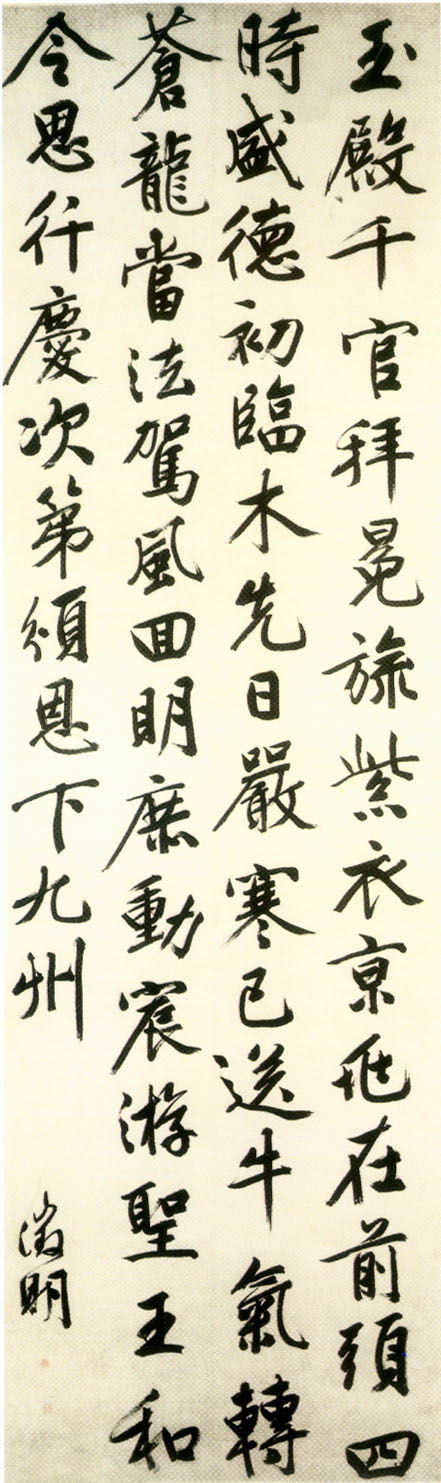 玉殿千官拜冕旒紫衣京兆在前頭四
時盛德初臨木先日嚴寒已送牛氣轉
蒼龍當法駕風囬明庶動宸游聖王和
令思行慶次第頒恩下九州
徵明